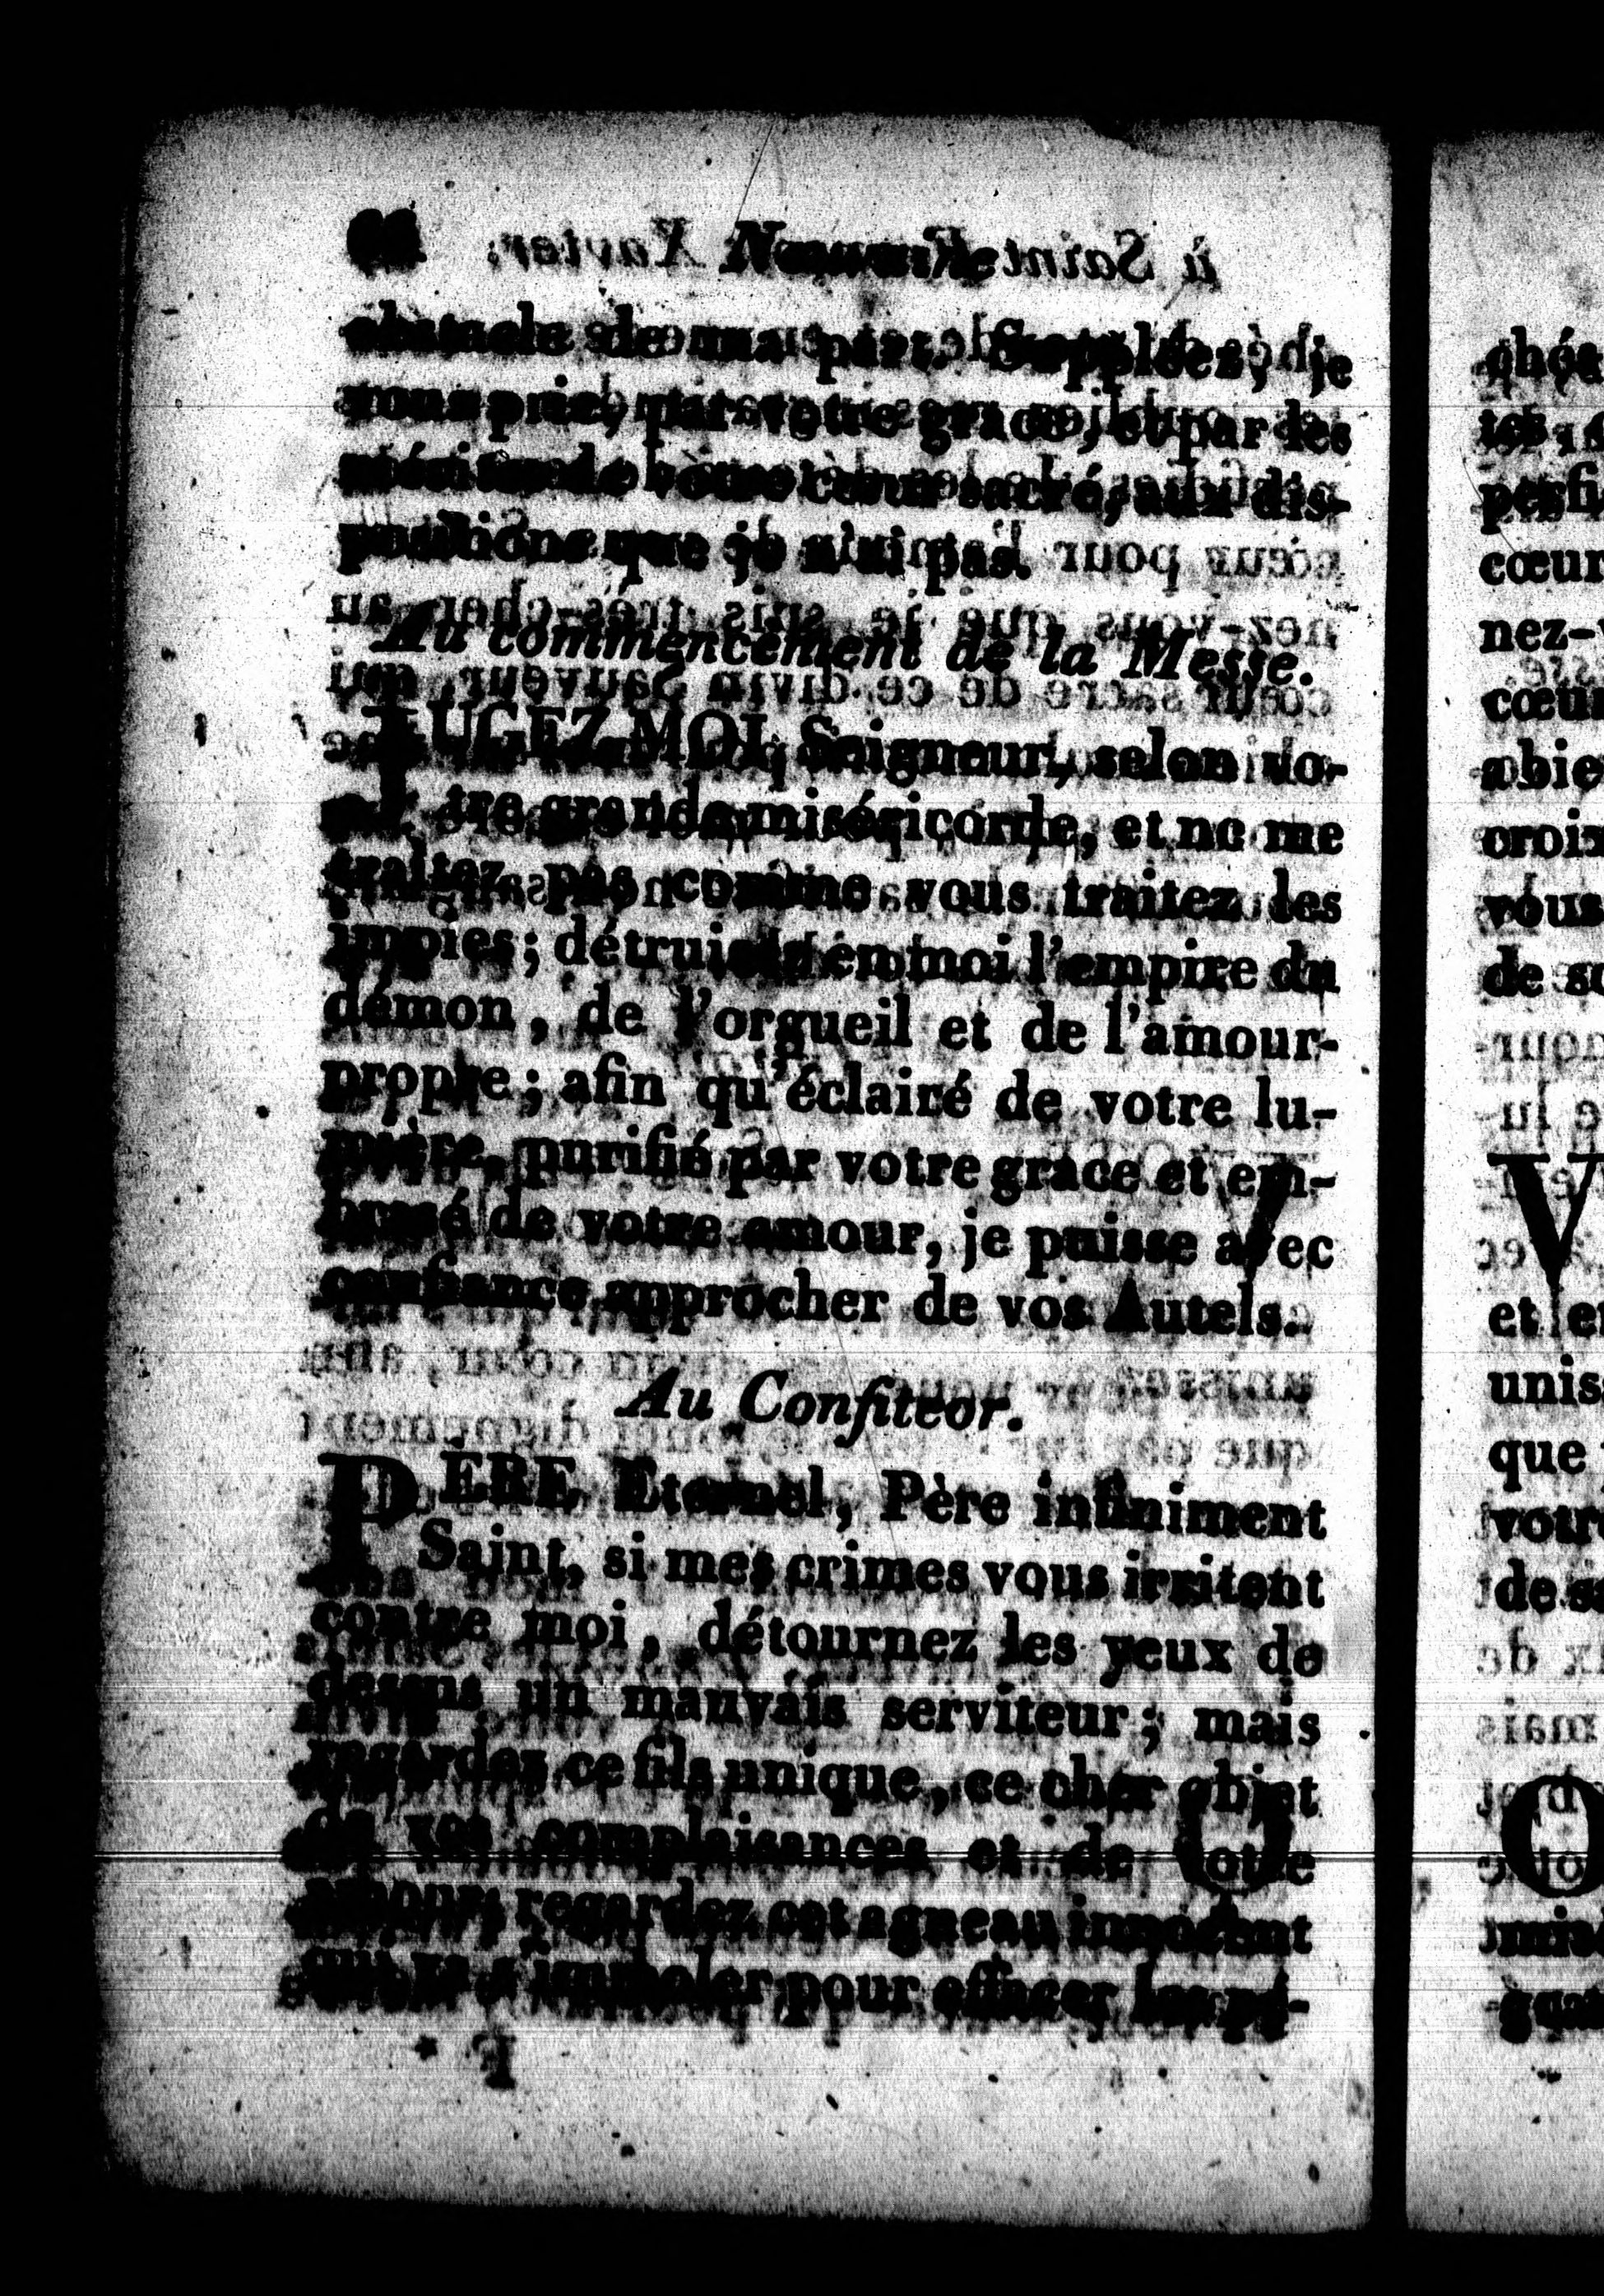 Neuvaine
obstacle de ma part. Suppléez, je
vous prie, par votre grace, et par les
mérites de votre cœur sacré, aux dis-
positions que je n'ai pas.
Au commencement de la Messe.
JUGEZ-MOI, Seigneur, selon vo-
tre grande miséricorde, et ne me
traitez pas comme vous traitez les
impies; détruisez en moi l'empire du
démon, de l'orgueil et de l'amour-
propre; afin qu'éclairé de votre lu-
mière, purifié par votre grace et em-
brasé de votre amour, je puisse avec
confiance approcher de vos Autels.
Au Confiteor.
PÈRE Eternel, Père infiniment
Saint, si mes crimes vous irritent
contre moi, détournez les yeux de
dessus un mauvais serviteur; mais
regardez ce fils unique, ce cher objet
de vos complaisances et de votre
amour; regardez cet agneau innocent
qui va s'immoler pour effacer les pé-
chés
perfi
cœur
nez-v
cœur
a bie
croix
vous
de so
V
et en
uniss
que
votre
de sa
O